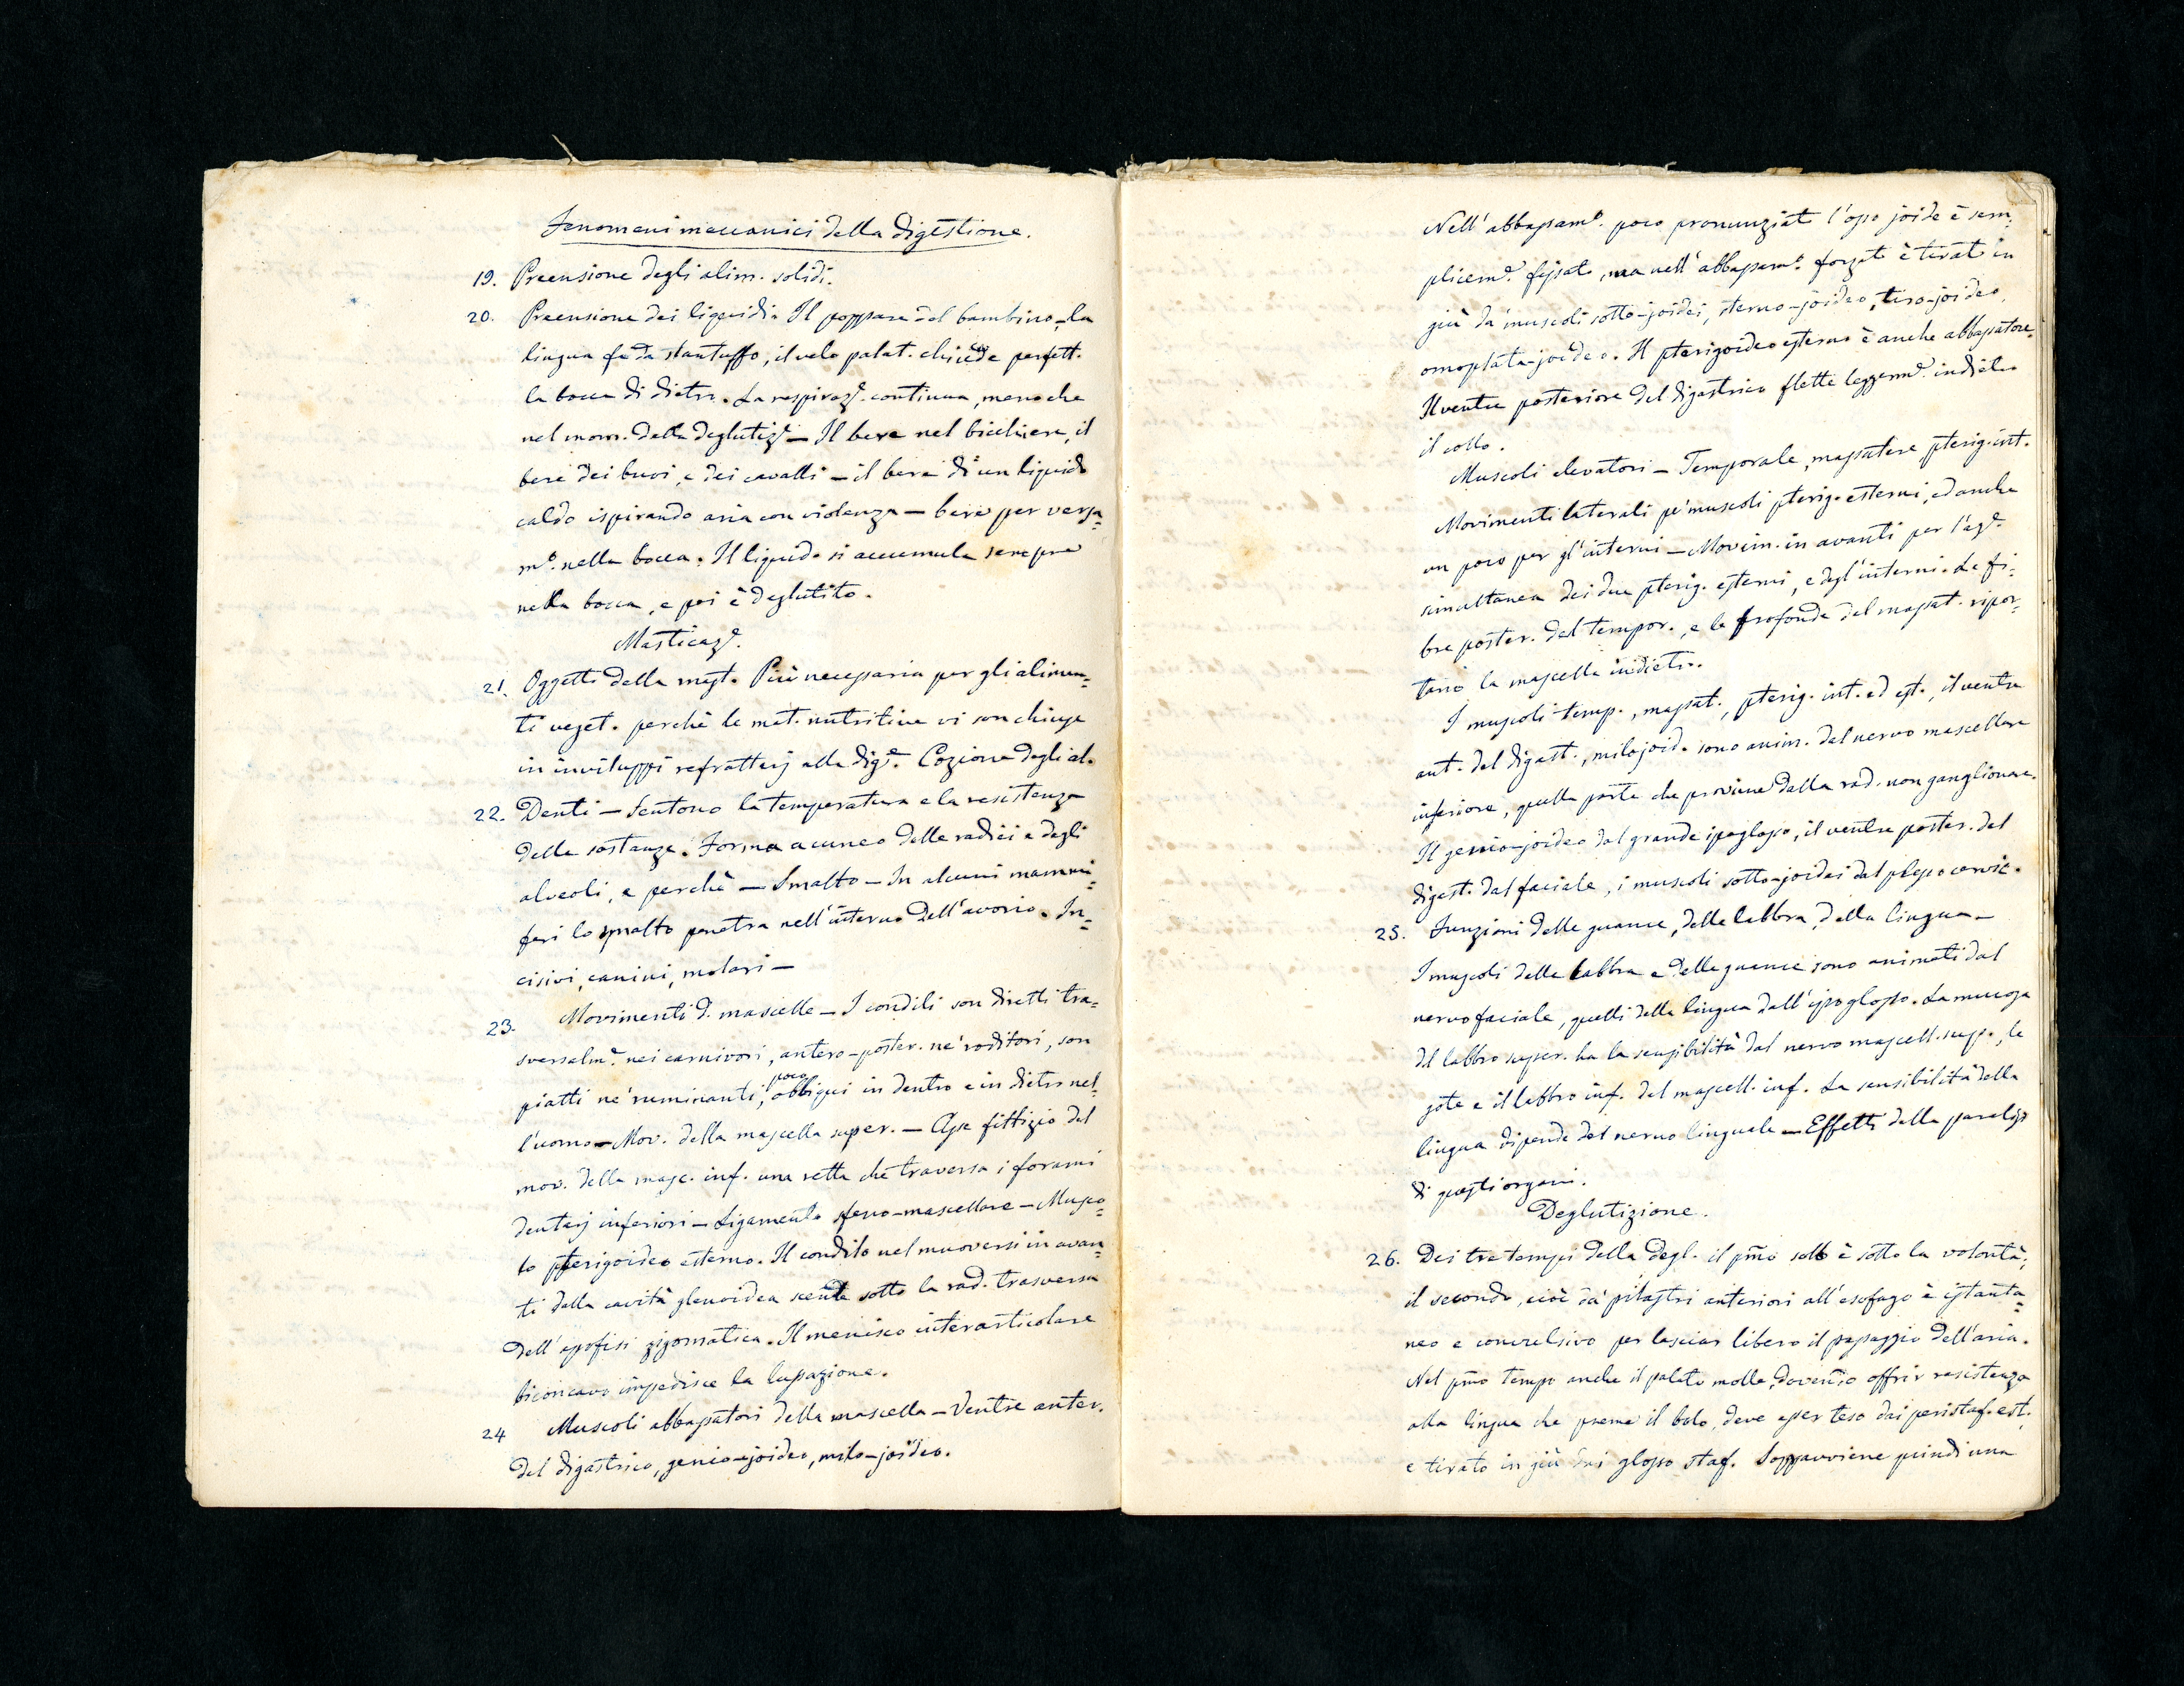 Fenomeni meccanici della digestione.
19. Preensione degli alim. solidi.
20. Preensione dei liquidi. Il poppare del bambino – la
lingua fa da stantuffo, il velo palat. chiude perfett.
la bocca di dietro. La respiraz.e continua, meno che
nel mom. della deglutiz.e – Il bere nel bicchiere, il
bere dei buoi, e dei cavalli – il bere di un liquido
caldo ispirando aria con violenza – bere per versa=
m.o nella bocca. Il liquido si accumula sempre
nella bocca, e poi è deglutito.
Masticaz.e
21. Oggetto della mast. Più necessaria per gli alimen=
ti veget. perchè le mat. nutritive vi son chiuse
in inviluppi refrattarj alla dig.e. Cozione degli al.
22. Denti – Sentono la temperatura e la resistenza
delle sostanze. Forma a cuneo delle radici e degli
alveoli, e perchè – Smalto – In alcuni mammi=
feri lo smalto penetra nell'interno dell'avorio. In=
cisivi, canini, molari –
23. Movimenti d. mascelle – I condili son diretti tra=
sversalm.e nei carnivori, antero-poster. ne' roditori, son
piatti ne' ruminanti, poco obbliqui in dentro e in dietro nel=
l'uomo – Mov. della mascella super. – Asse fittizio del
mov. della masc. inf. una retta che traversa i forami
dentarj inferiori – Ligamento sfeno-mascellare – Musco=
lo pterigoideo esterno. Il condilo nel muoversi in avan=
ti dalla cavità glenoidea scende sotto la rad. trasversa
dell'apofisi zigomatica. Il menisco interarticolare
biconcavo impedisce la lussazione.
24 Muscoli abbassatori della mascella – Ventre anter.
del digastrico, genio-joideo, milo-joideo.
Nell'abbassam.o poco pronunziato l'osso joide è sem=
plicem.e fissato, ma nell'abbassam.o forzato è tirato in
giù da' muscoli sotto-joidei, sterno-joideo, tiro-joideo,
omoplata-joideo. Il pterigoideo esterno è anche abbassatore.
Il ventre posteriore del digastrico flette leggerm.e indietro
il collo.
Muscoli elevatori – Temporale, massetere, pterig. int.
Movimenti laterali pe' muscoli pterig. esterni, ed anche
un poco per gl'interni – Movim. in avanti per l'az.e
simultanea dei due pterig. esterni, e degl'interni. Le fi=
bre poster. del tempor., e le profonde del masset. ripor=
tano la mascella indietro.
I muscoli temp., masset., pterig. int. ed est., il ventre
ant. del digast., milojoid. sono anim. dal nervo mascellare
inferiore, quella parte che proviene dalla rad. non ganglionare.
Il genio-joideo dal grande ipoglosso, il ventre poster. del
digast. dal faciale, i muscoli sotto-joidei dal plesso cervic.
25. Funzioni delle guance, delle labbra, della lingua –
I muscoli delle labbra e delle guance sono animati dal
nervo faciale, quelli della lingua dall'ipoglosso. La mucosa
del labbro super. ha la sensibilità dal nervo mascell. sup., le
gote e il labbro inf. dal mascell. inf. La sensibilità della
lingua dipende dal nervo linguale – Effetti della paralisi
di questi organi.
Deglutizione.
26. Dei tre tempi della degl. il pm̃o solo è sotto la volontà;
il secondo, cioè da' pilastri anteriori all'esofago è istanta=
neo e convulsivo per lasciar libero il passaggio dell'aria.
Nel pm̃o tempo anche il palato molle, dovendo offrir resistenza
alla lingua che preme il bolo, deve esser teso dai peristaf. est.
e tirato in giù dai glosso staf. Sopravviene quindi una